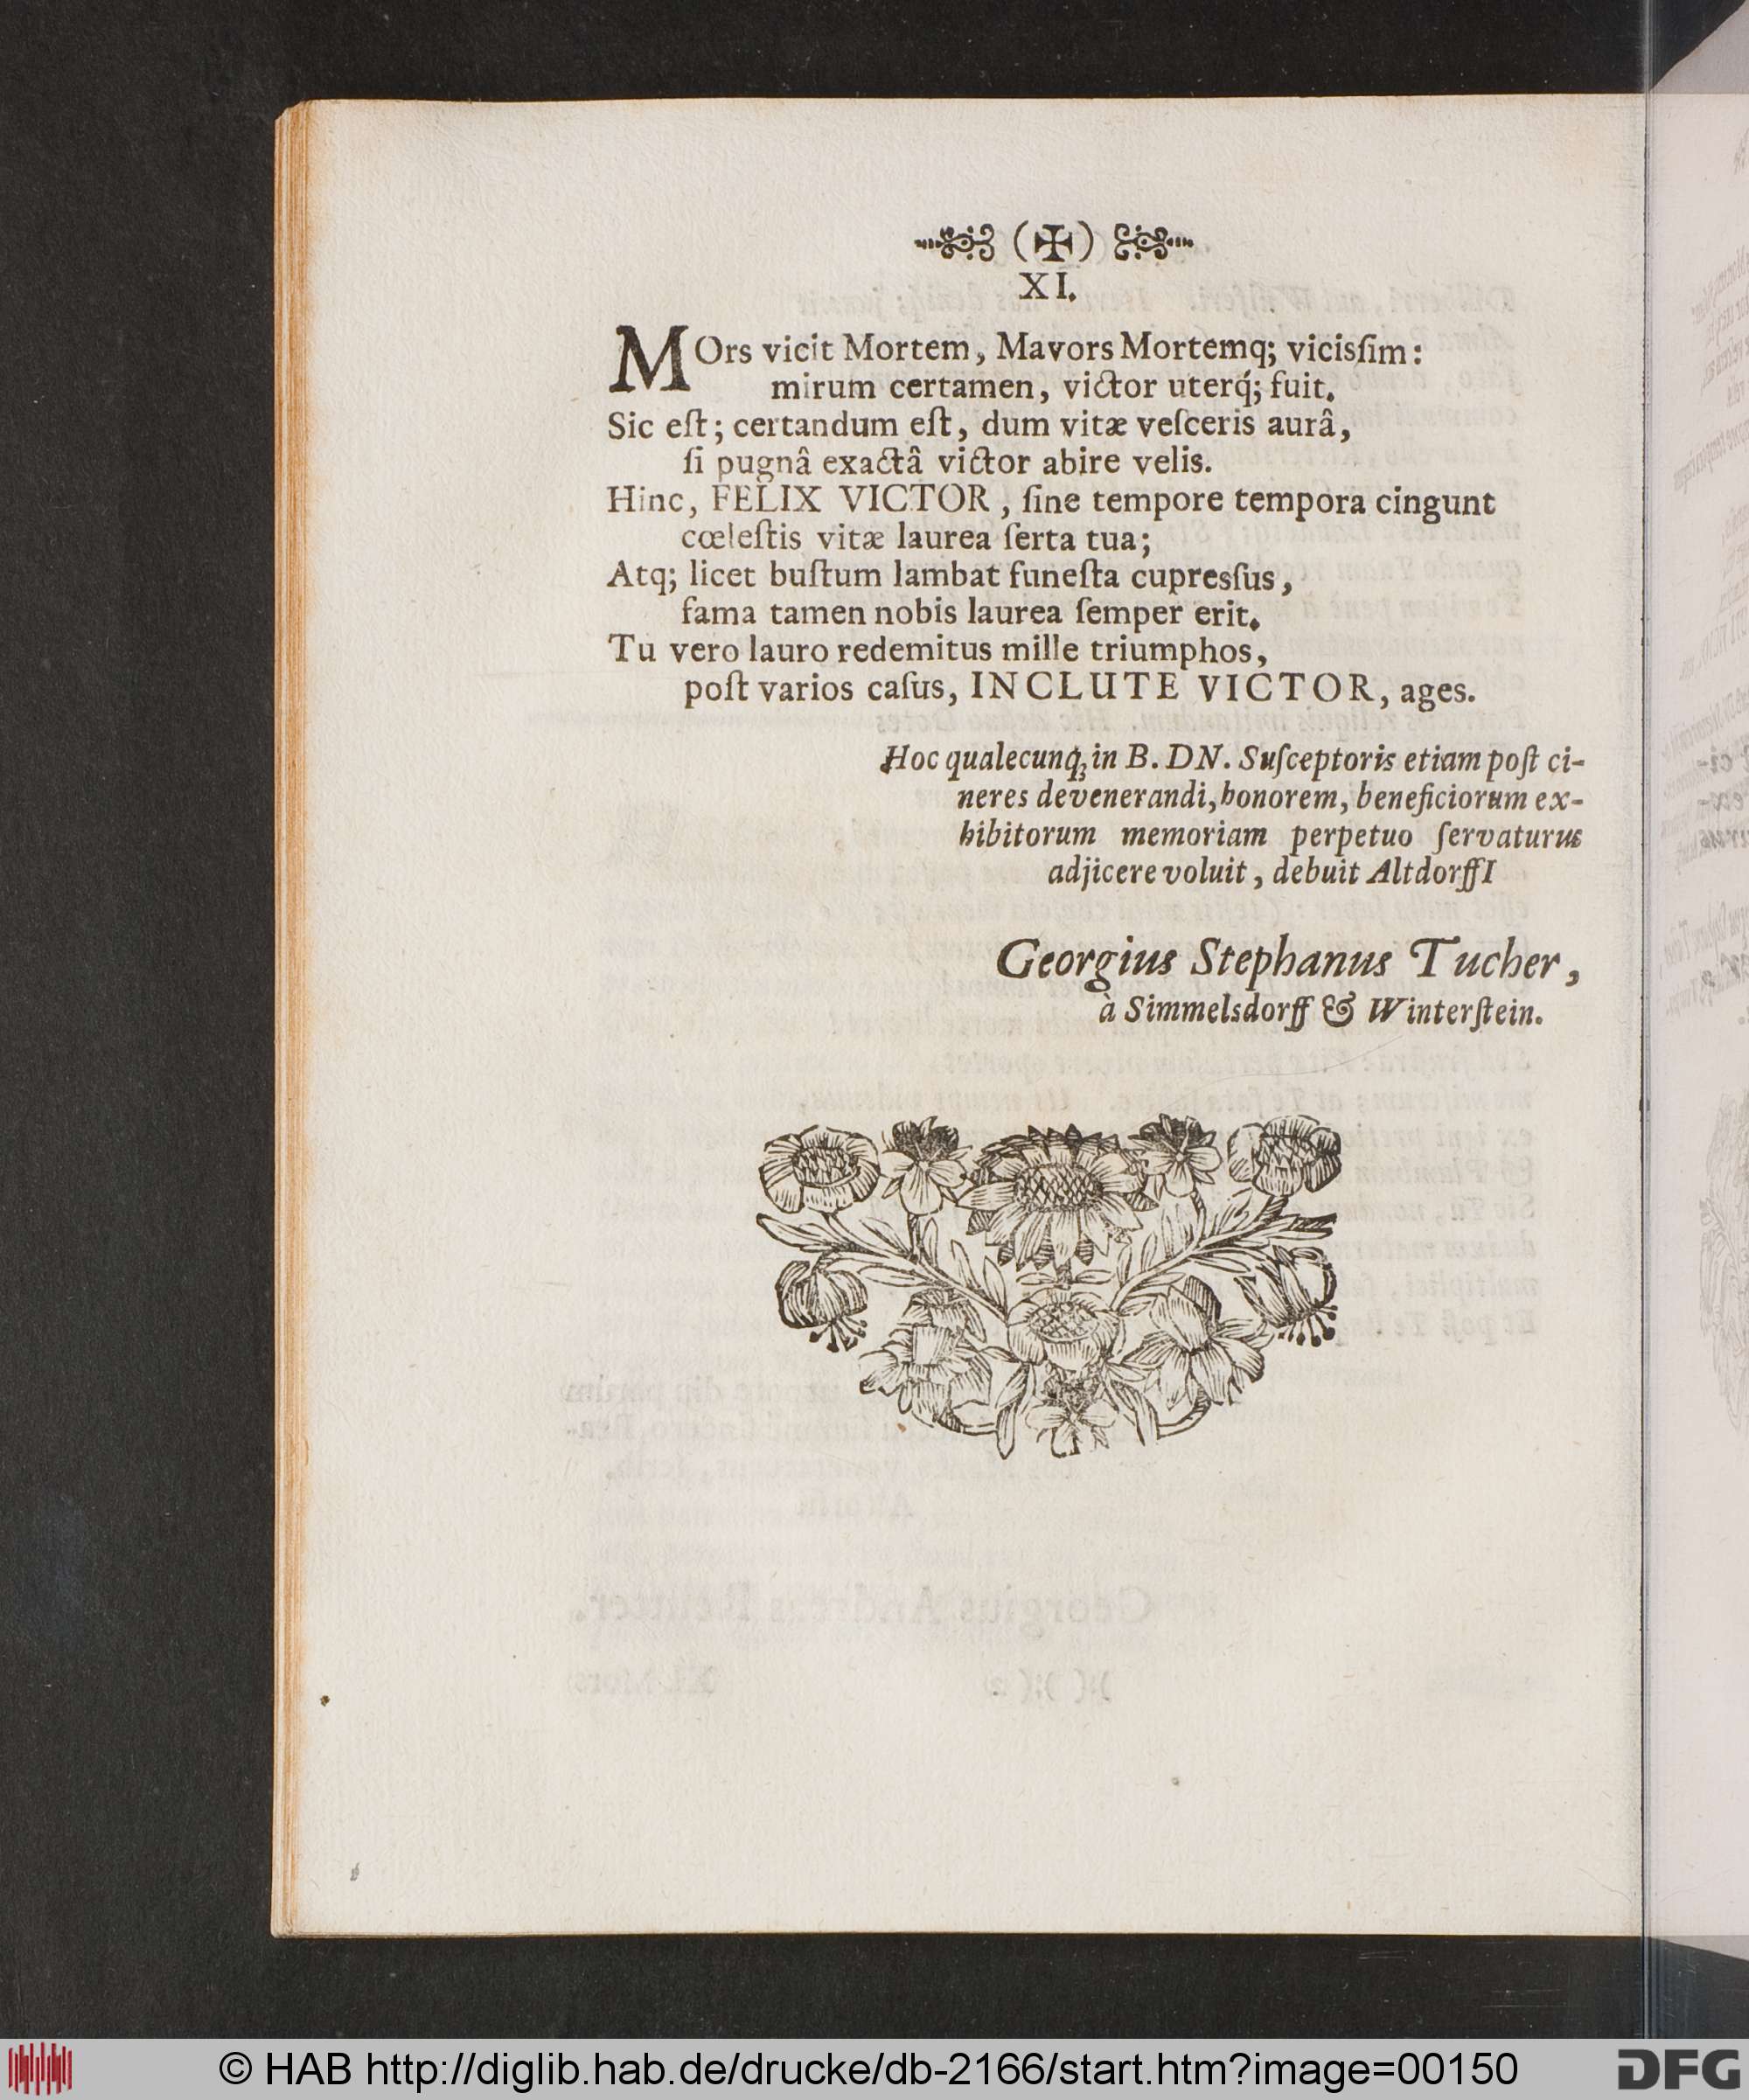 (✠)
XI.
MOrs vicit Mortem, Mavors Mortemq; vicisſim:
mirum certamen, victor uterq́; fuit.
Sic eſt; certandum eſt, dum vitæ veſceris aurâ,
ſi pugnâ exactâ victor abire velis.
Hinc, FELIX VICTOR, ſine tempore tempora cingunt
cœleſtis vitæ laurea ſerta tua;
Atq; licet buſtum lambat funeſta cupresſus,
fama tamen nobis laurea ſemper erit.
Tu vero lauro redemitus mille triumphos,
poſt varios caſus, INCLUTE VICTOR, ages.
Hoc qualecunq; in B. DN. Suſceptoris etiam poſt ci-
neres devenerandi, honorem, beneficiorum ex-
hibitorum memoriam perpetuo ſervaturus
adjicere voluit, debuit AltdorffI
Georgius Stephanus Tucher,
à Simmelsdorff & Winterſtein.
© HAB http://diglib.hab.de/drucke/db-2166/start.htm?image=00150
DFG